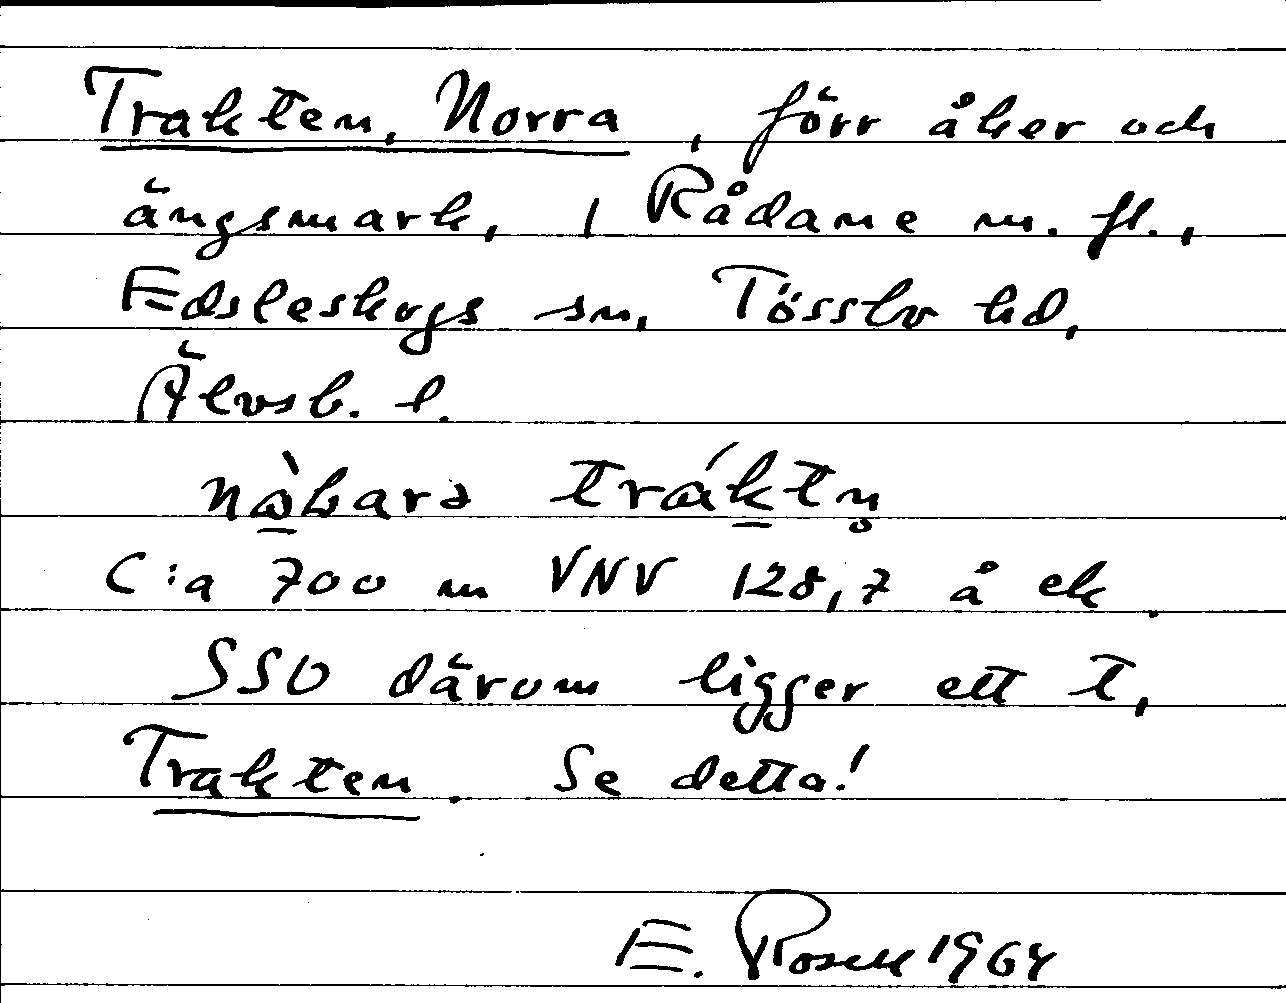 Trakten, Norra, förr åker och
ängsmark, i Rådane m. fl.,
Edsleskogs sn, Tössbo hd,
Älvsb. l.
nɑ̀barə tráktn̥
C:a 700 m VNV 128,7 å ek.
SSO därom ligger ett T,
Trakten. Se detta!
E. Rosell 1964